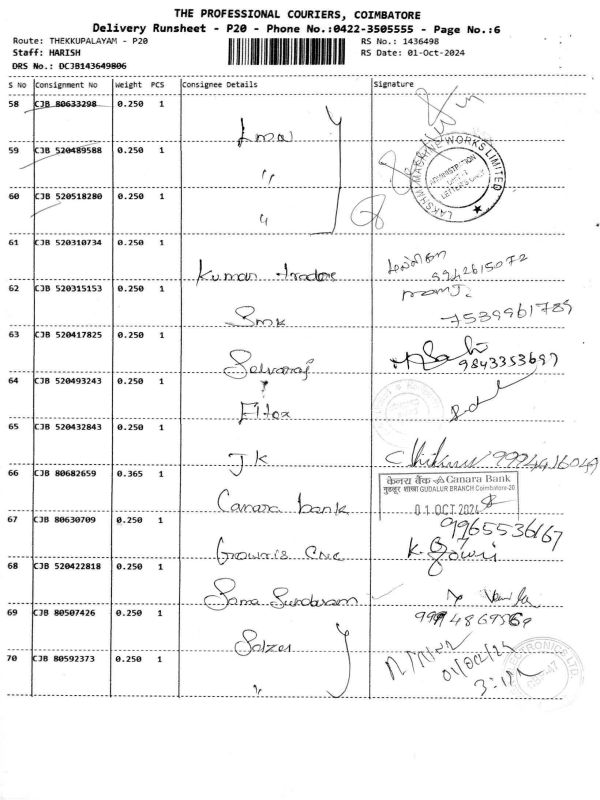 THE PROFESSIONAL COURIERS, COIMBATORE
Delivery Runsheet - P20 - Phone No.:0422-3505555 - Page No.:6
Route: THEKKUPALAYAM - P20
RS No.: 1436498
Staff: HARISH
RS Date: 01-Oct-2024
DRS No.: DCJB143649806
S No Consignment No Weight PCS Consignee Details Signature
58 CJB 80633298 0.250 1
LMW
59 CJB 520489588 0.250 1
"
60 CJB 520518280 0.250 1
"
LAKSHMI MACHINE WORKS LIMITED
ADMINISTRATION
UNIT-1
LETTERS ONLY
61 CJB 520310734 0.250 1
Kumaran tradore
9942615072
62 CJB 520315153 0.250 1
Smk
7539961789
63 CJB 520417825 0.250 1
Selvaraj
9843353697
64 CJB 520493243 0.250 1
Eltex
65 CJB 520432843 0.250 1
J.K
9994916049
66 CJB 80682659 0.365 1
Canara bank
केनरा बैंक Canara Bank
गुडलूर शाखा GUDALUR BRANCH Coimbatore-20
01 OCT 2024
67 CJB 80630709 0.250 1
Growris CNC
9965536167
K. Gowri
68 CJB 520422818 0.250 1
Sama Sundaram
69 CJB 80507426 0.250 1
Salzer
9994869569
70 CJB 80592373 0.250 1
"